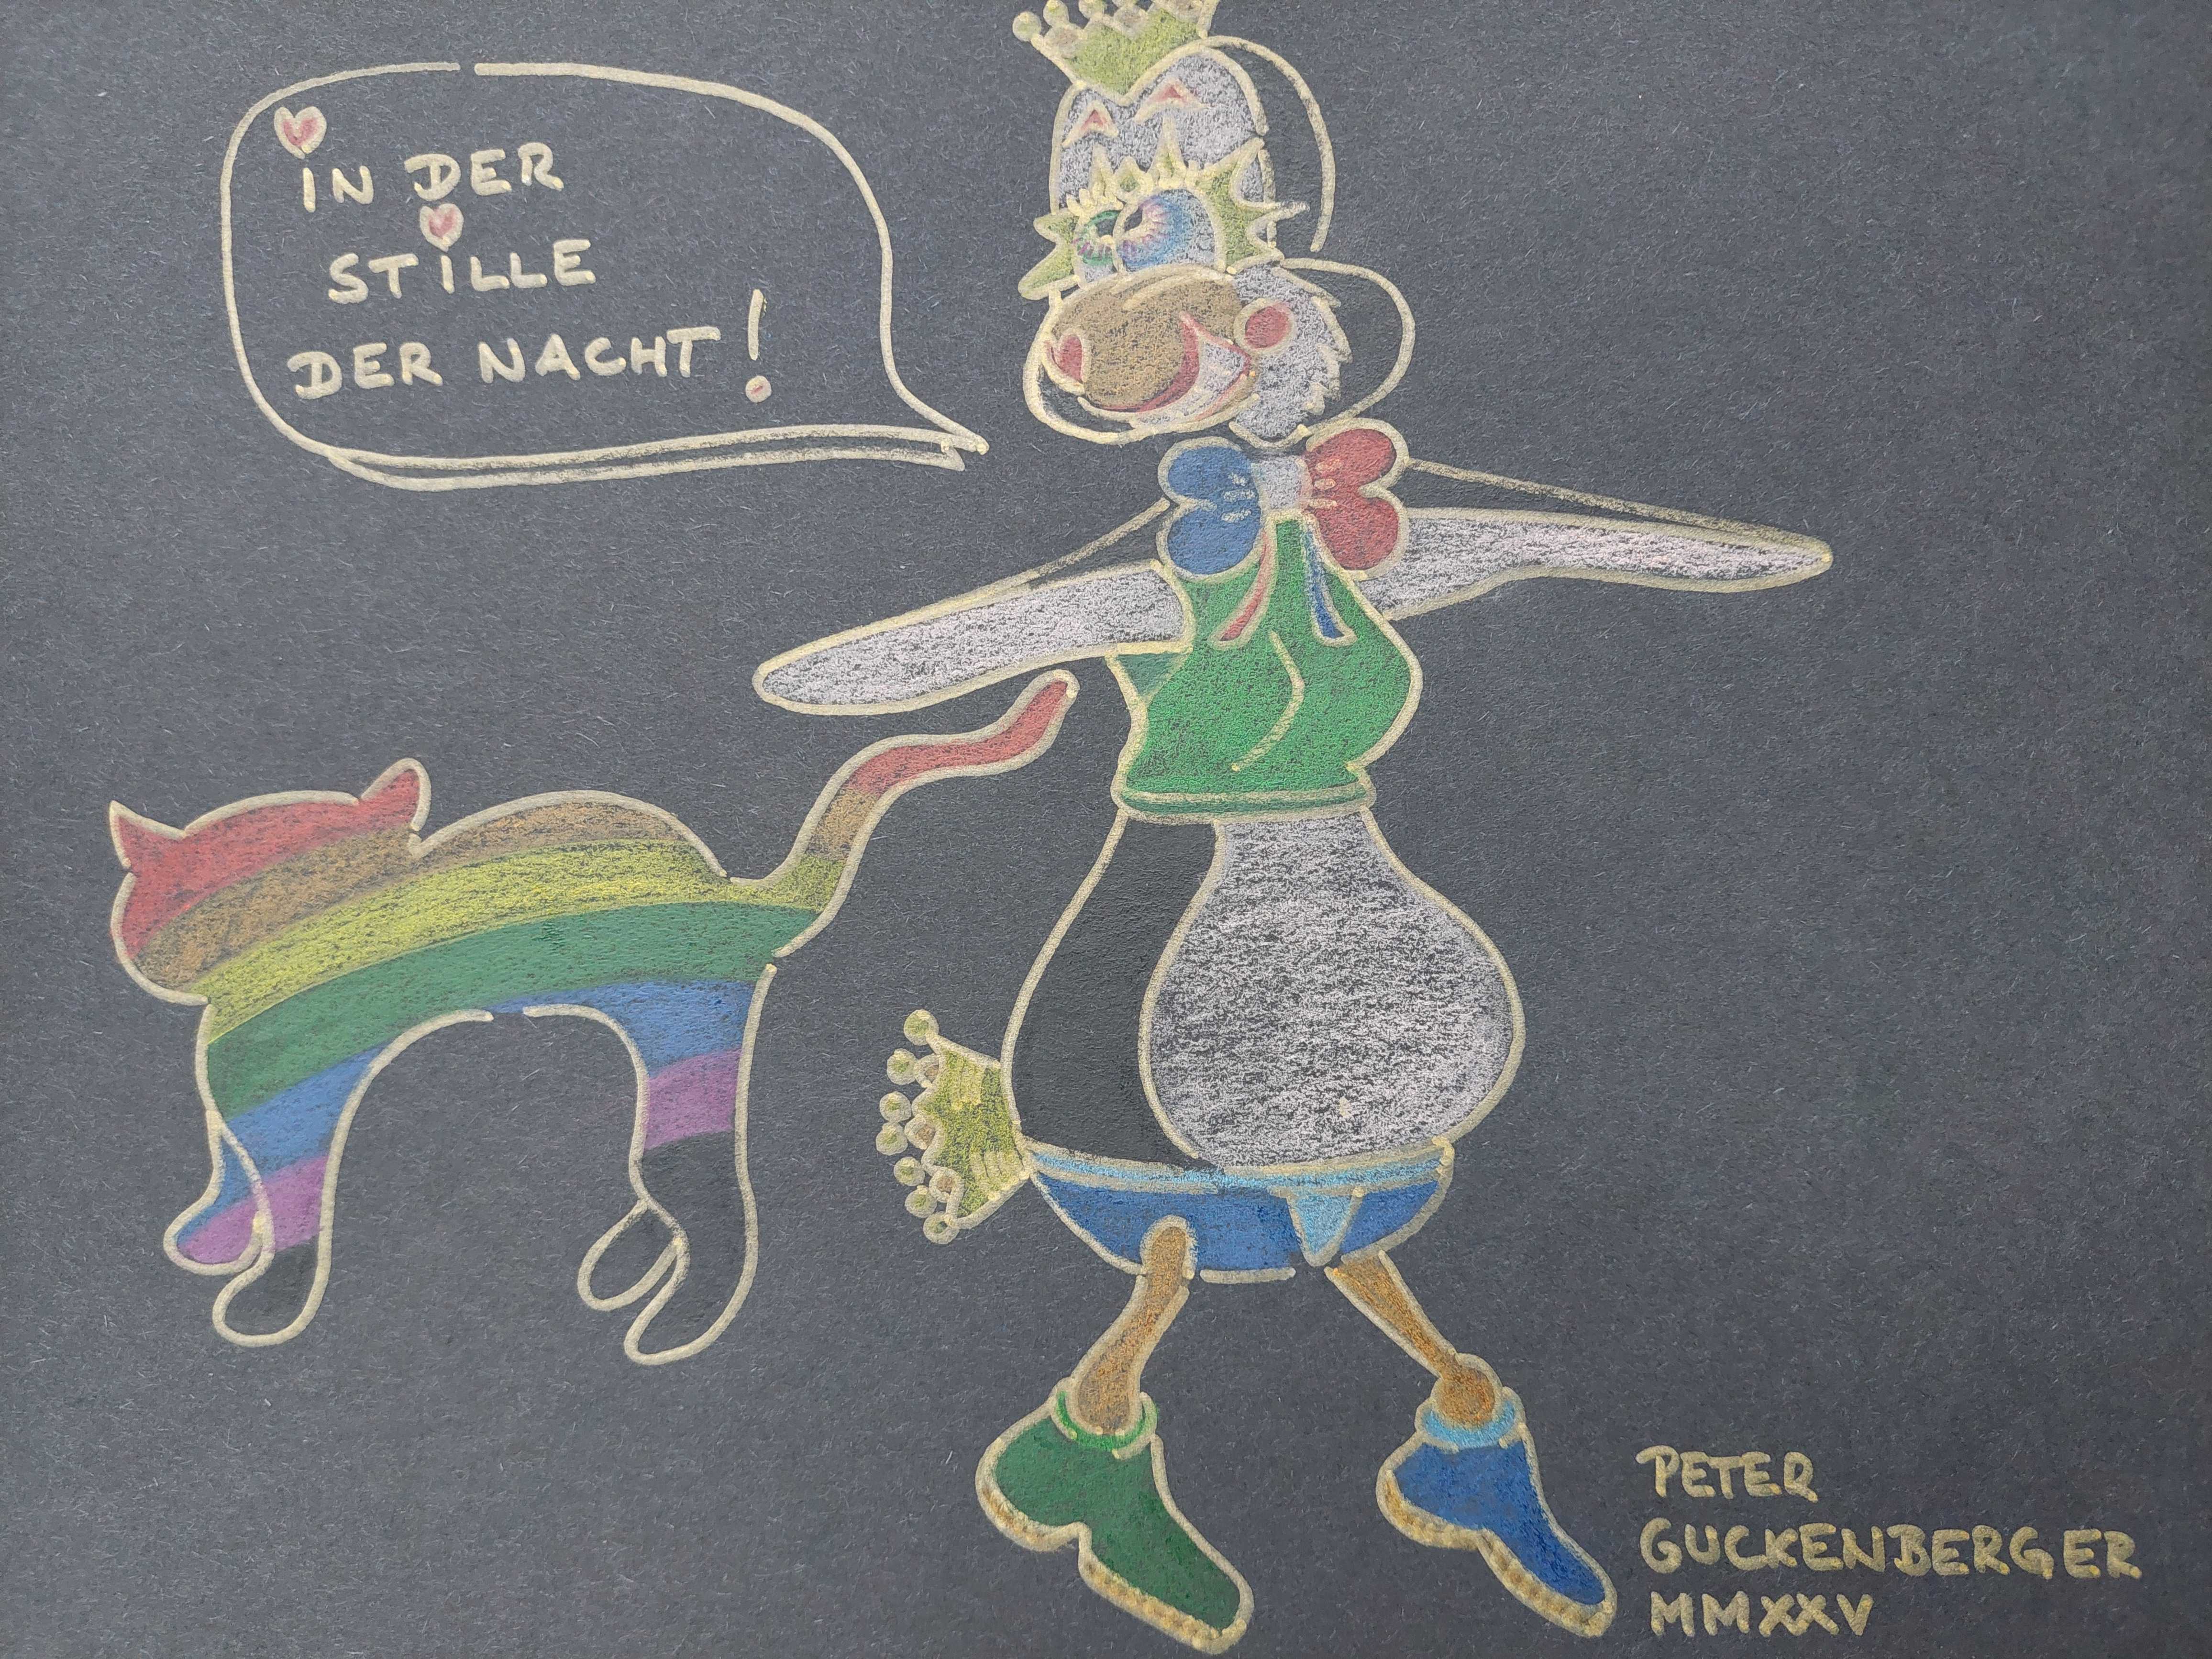 IN DER
STILLE
DER NACHT!
PETER
GUCKENBERGER
MMXXV